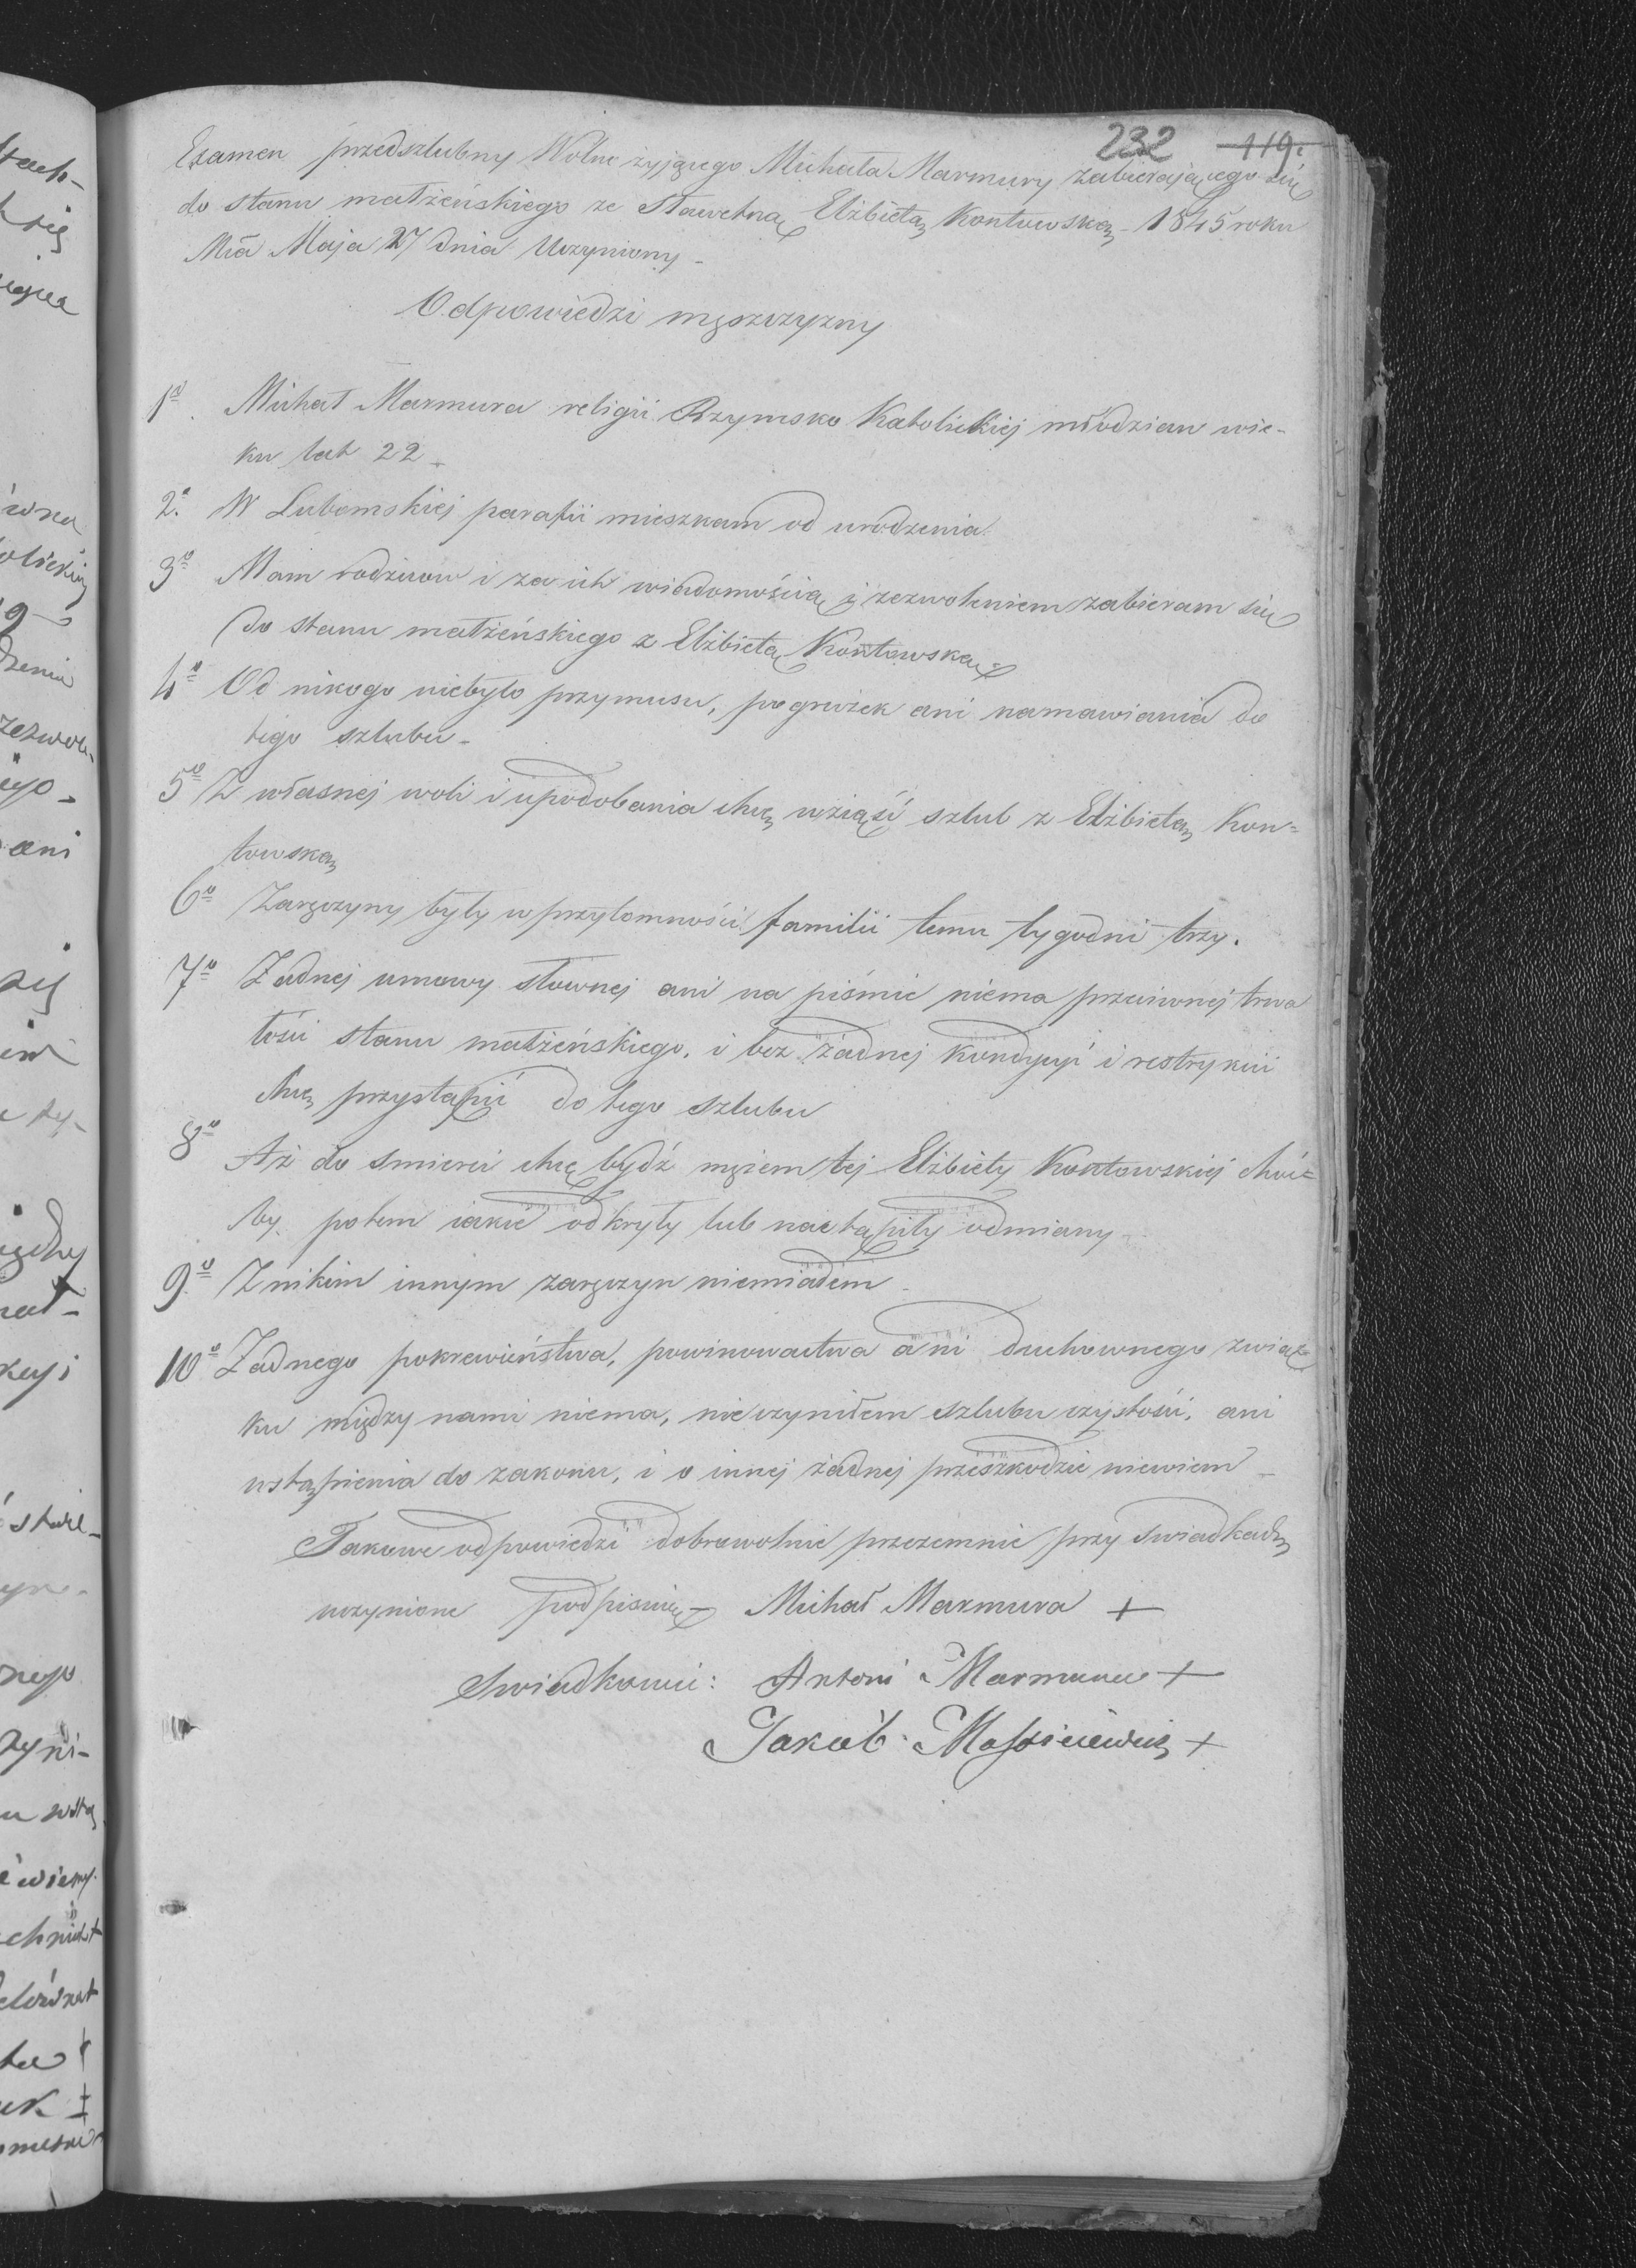 232 119.
Examen przedszlubny Wolno żyjącego Michała Marmury zabierającego się
do stanu małżeńskiego ze Sławetną Elżbietą Kontowską 1845 roku
Mca Maja 27 dnia Uczyniony –
Odpowiedzi męszczyzny
1o. Michał Marmura religii Rzymsko Katolickiej młodzian wie-
ku lat 22 –
2o. W Lubomskiej parafii mieszkam od urodzenia.
3o Mam rodziców i za ich wiadomością i zezwoleniem zabieram się
do stanu małżeńskiego z Elżbietą Kontowską.
4o Od nikogo niebyło przymusu, pogrużek ani namawiania do
tego szlubu –
5o Z własnej woli i upodobania chcę wziąść szlub z Elżbietą Kon=
towską
6o Zaręczyny były w przytomności familii temu tygodni trzy.
7o Żadnej umowy słownej ani na piśmie niema przeciwnej trwa
łości stanu małżeńskiego, i bez żadnej kondycyi i restrykcii
chcę przystąpić do tego szlubu
8o Aż do smierci chcę bydź mężem tej Elżbiety Kontowskiej choć=
by potem iakie odkryły lub nastąpiły odmiany –
9o Z nikim innym zaręczyn niemiałem –
10o Żadnego pokrewieństwa, powinowactwa ani duchownego związ
ku między nami niema, nieczyniłem szlubu czystości, ani
wstąpienia do zakonu, i o innej żadnej przeszkodzie niewiem –
Takowe odpowiedzi dobrowolnie przezemnie przy swiadkach
uczynione podpisuię – Michał Marmura +
Swiadkowie: Antoni Marmura +
Jakób +